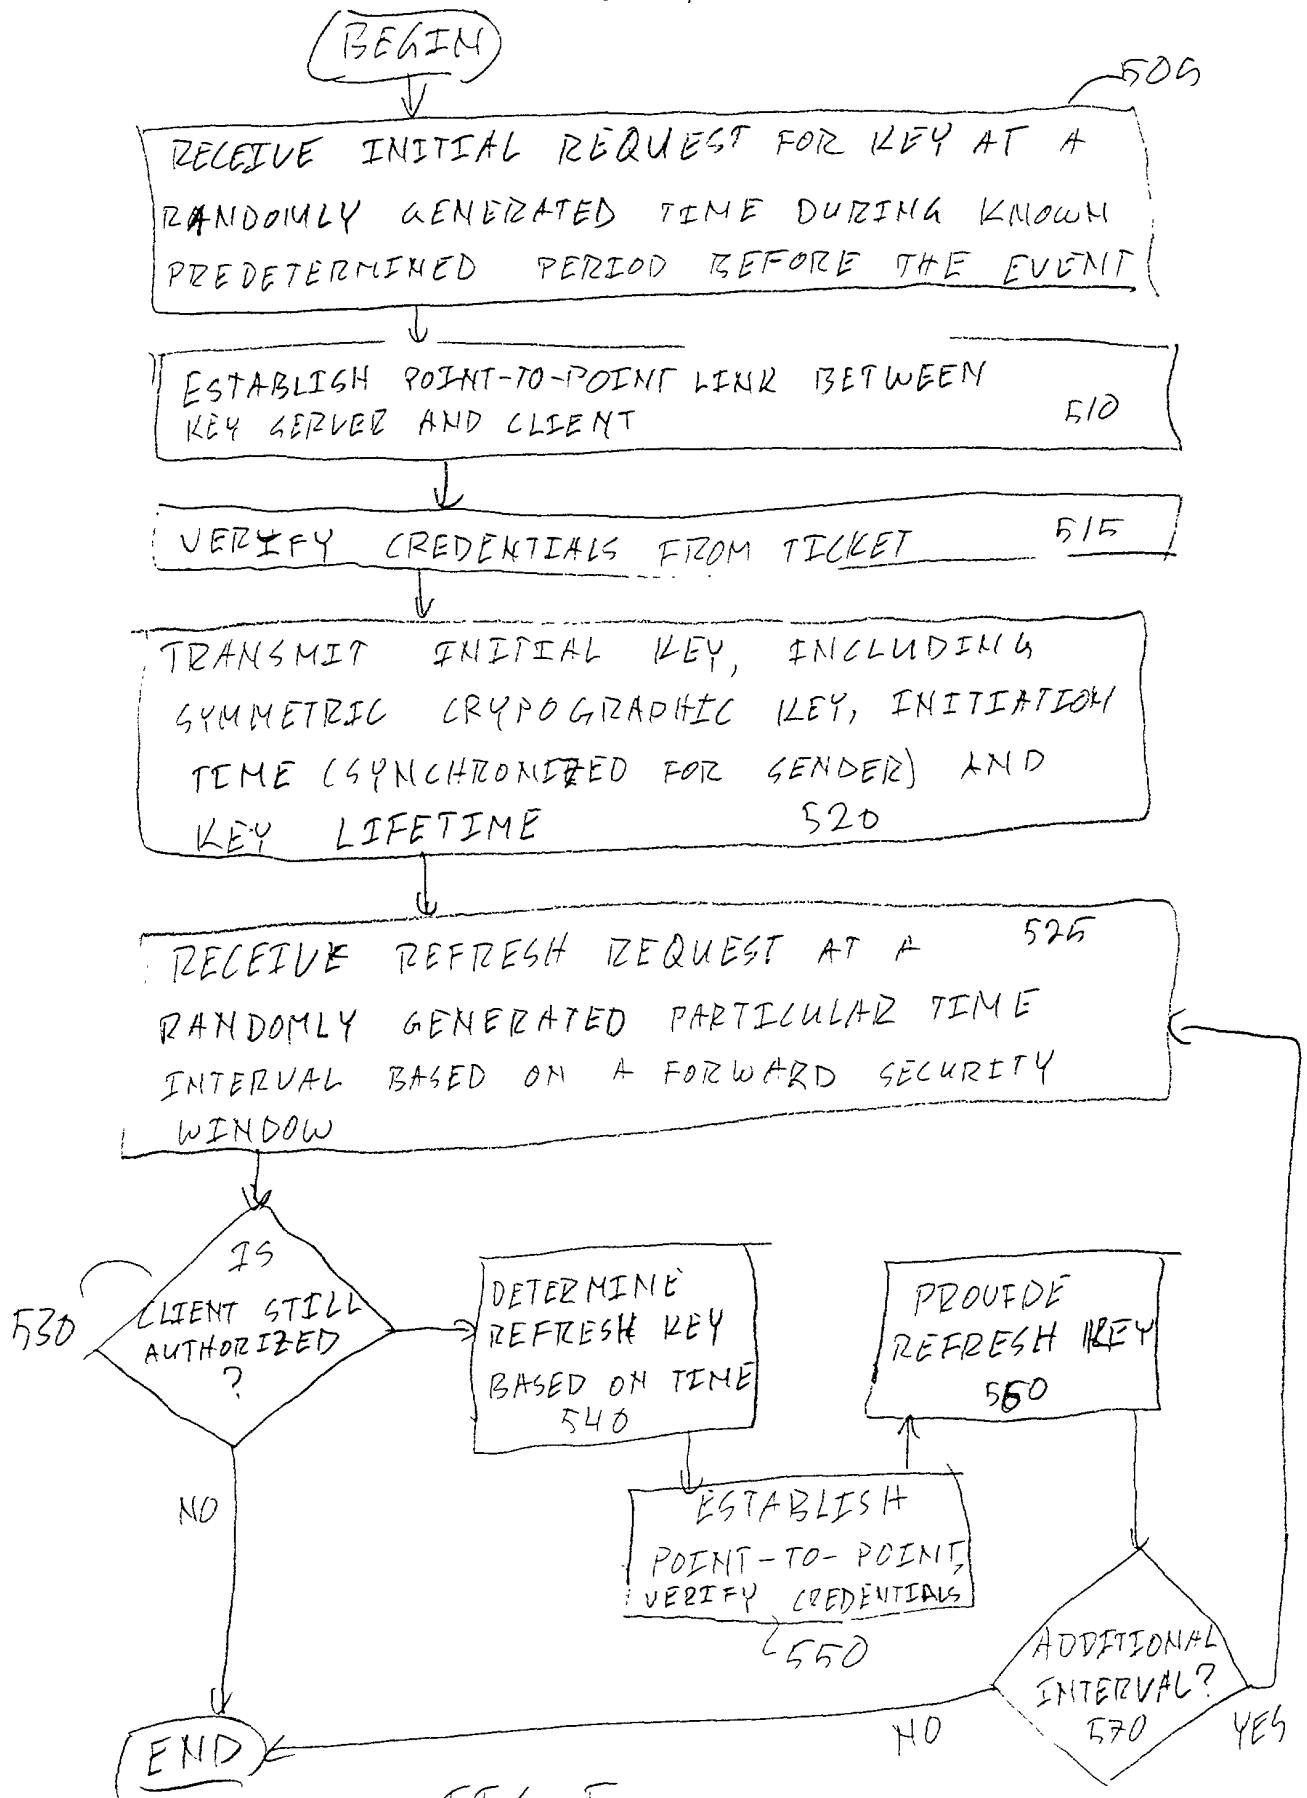 BEGIN
505
RECEIVE INITIAL REQUEST FOR KEY AT A
RANDOMLY GENERATED TIME DURING KNOWN
PREDETERMINED PERIOD BEFORE THE EVENT
ESTABLISH POINT-TO-POINT LINK BETWEEN
KEY SERVER AND CLIENT
510
VERIFY CREDENTIALS FROM TICKET 515
TRANSMIT INITIAL KEY, INCLUDING
SYMMETRIC CRYPOGRAPHIC KEY, INITIATION
TIME (SYNCHRONIZED FOR SENDER) AND
KEY LIFETIME 520
RECEIVE REFRESH REQUEST AT A 525
RANDOMLY GENERATED PARTICULAR TIME
INTERVAL BASED ON A FORWARD SECURITY
WINDOW
530
IS
CLIENT STILL
AUTHORIZED
?
NO
DETERMINE
REFRESH KEY
BASED ON TIME
540
ESTABLISH
POINT-TO-POINT,
VERIFY CREDENTIALS
550
PROVIDE
REFRESH KEY
560
ADDITIONAL
INTERVAL?
570
YES
NO
END